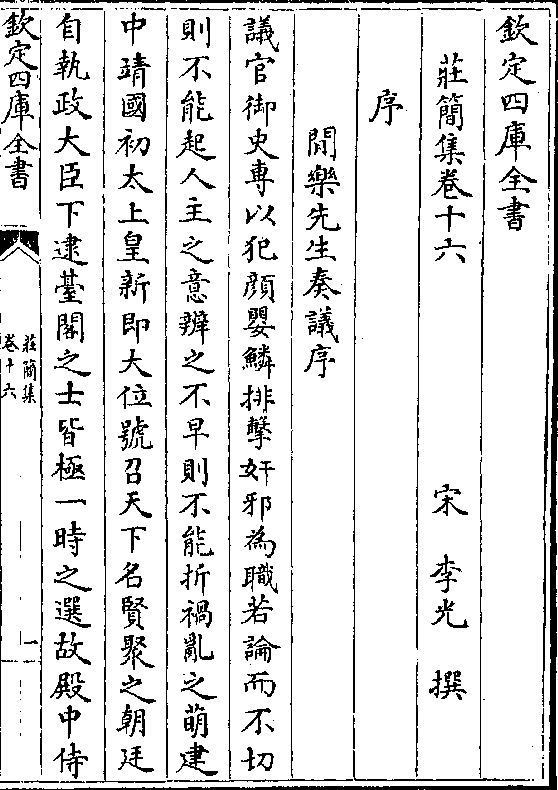 欽定四庫全書
莊簡集卷十六
宋 李光 撰
序
閒樂先生奏議序
議官御史専以犯顔嬰鱗排擊奸邪為職若論而不切
則不能起人主之意辨之不早則不能折禍亂之萌建
中靖國初太上皇新即大位號召天下名賢聚之朝廷
自執政大臣下逮臺閣之士皆極一時之選故殿中侍
欽定四庫全書
莊簡集
卷十六
一